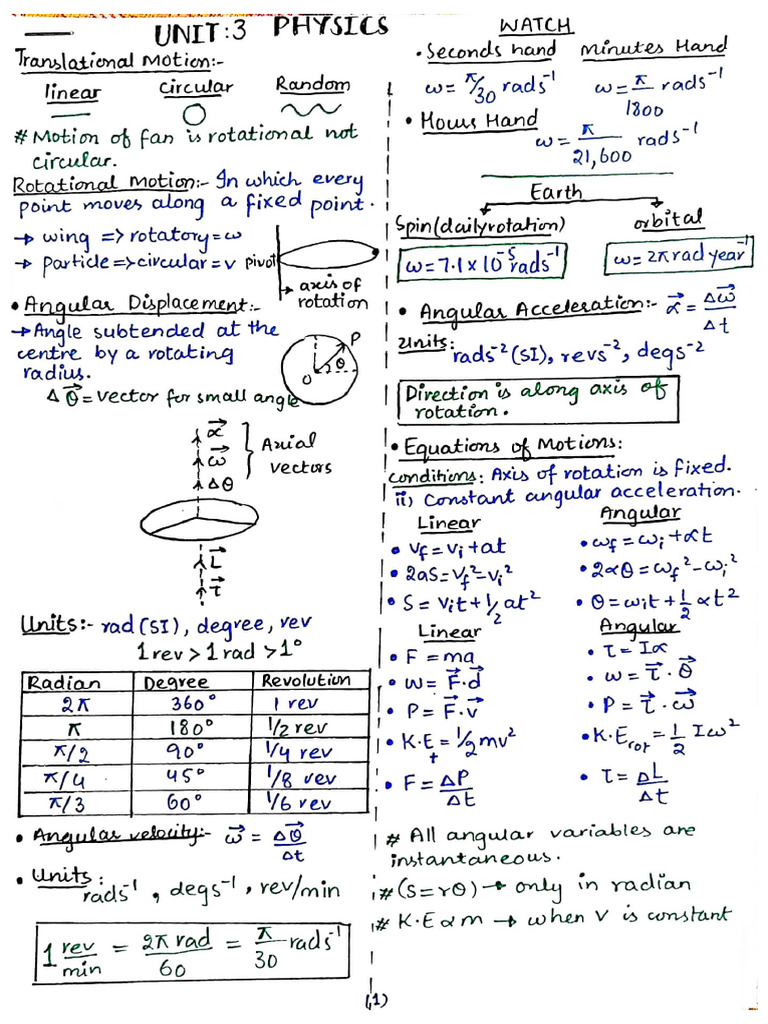 UNIT:3 PHYSICS
Translational Motion:-
linear circular Random
# Motion of fan is rotational not
circular.
Rotational Motion:- In which every
point moves along a fixed point.
→ wing => rotatory = ω
→ particle => circular = v
pivot
→ axis of
rotation
• Angular Displacement:-
→ Angle subtended at the
centre by a rotating
radius.
P
θ
O
Δθ⃗ = vector for small angle
α⃗
ω⃗
Δθ
} Axial
vectors
L⃗
τ⃗
Units:- rad (SI), degree, rev
1 rev > 1 rad > 1°
Radian Degree Revolution
2π 360° 1 rev
π 180° 1/2 rev
π/2 90° 1/4 rev
π/4 45° 1/8 rev
π/3 60° 1/6 rev
• Angular velocity:- ω⃗ = Δθ⃗/Δt
• Units:
rads⁻¹, degs⁻¹, rev/min
1 rev/min = 2π rad/60 = π/30 rads⁻¹
WATCH
• Seconds hand Minutes Hand
ω = π/30 rads⁻¹ ω = π/1800 rads⁻¹
• Hours Hand
ω = π/21,600 rads⁻¹
Earth
Spin (daily rotation) orbital
ω = 7.1 x 10⁻⁵ rads⁻¹ ω = 2π rad year⁻¹
• Angular Acceleration:- α⃗ = Δω⃗/Δt
Units:
rads⁻² (SI), revs⁻², degs⁻²
Direction is along axis of
rotation.
• Equations of Motions:
conditions: Axis of rotation is fixed.
ii) Constant angular acceleration.
Linear Angular
• vf = vi + at • ωf = ωi + αt
• 2aS = vf² - vi² • 2αθ = ωf² - ωi²
• S = vit + 1/2 at² • θ = ωit + 1/2 αt²
Linear Angular
• F = ma • τ = Iα
• w = F⃗ · d⃗ • ω = τ⃗ · θ⃗
• P = F⃗ · v⃗ • P = τ⃗ · ω⃗
• K·Et = 1/2 mv² • K·Erot = 1/2 Iω²
• F = ΔP/Δt • τ = ΔL/Δt
# All angular variables are
instantaneous.
# (S = rθ) → only in radian
# K·E α m → when v is constant
(1)